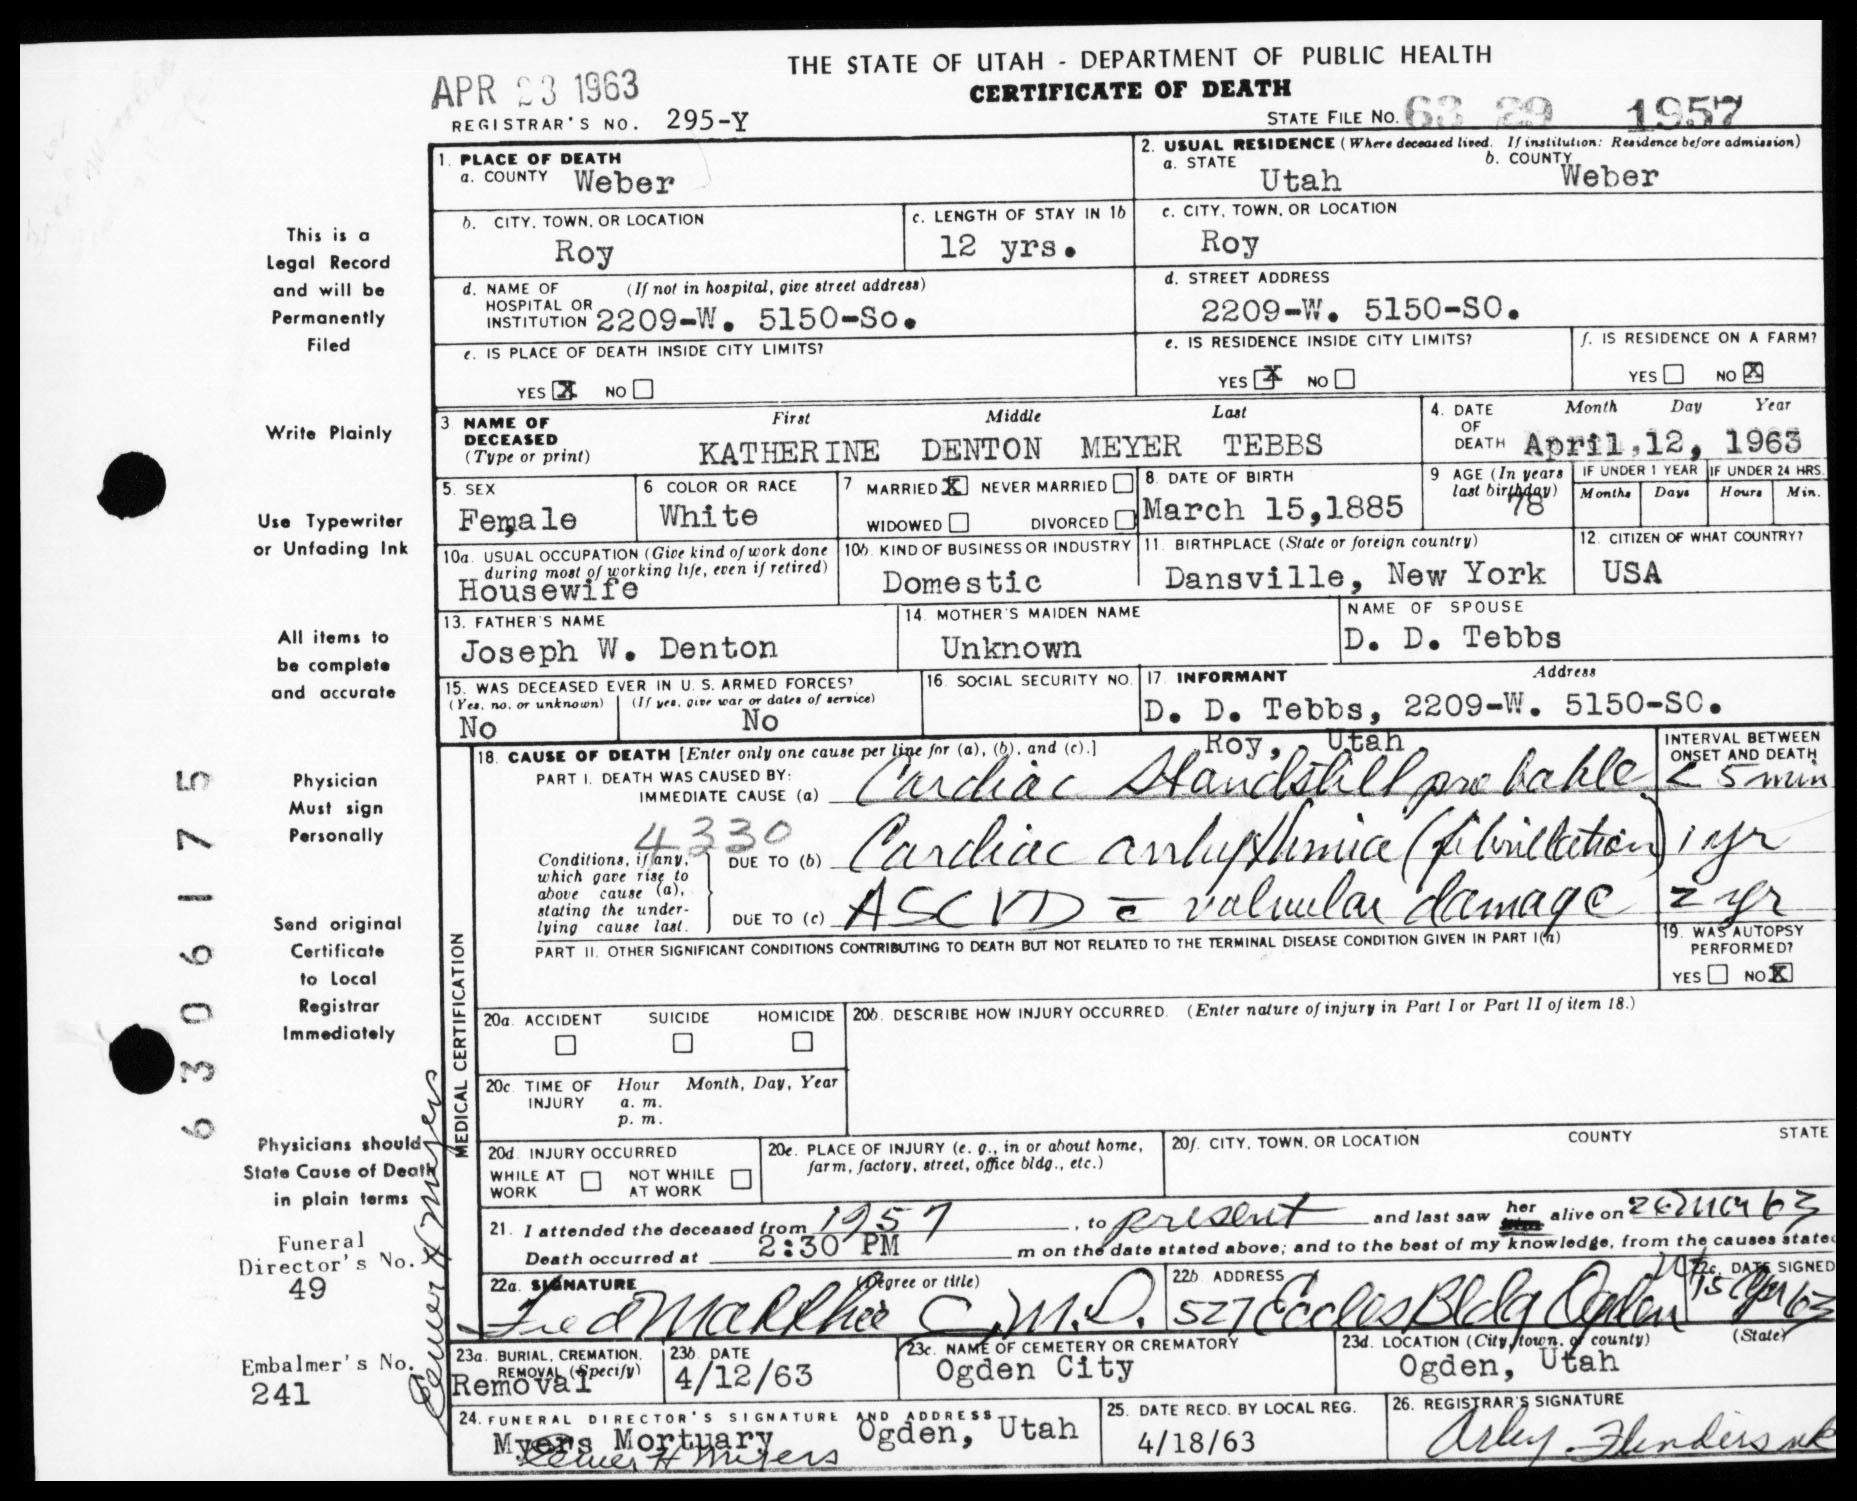 THE STATE OF UTAH - DEPARTMENT OF PUBLIC HEALTH
APR 23 1963
CERTIFICATE OF DEATH
REGISTRAR'S NO. 295-Y
STATE FILE NO. 63 29 1957
1. PLACE OF DEATH
a. COUNTY Weber
2. USUAL RESIDENCE (Where deceased lived. If institution: Residence before admission)
a. STATE Utah b. COUNTY Weber
b. CITY, TOWN, OR LOCATION
Roy
c. LENGTH OF STAY IN 1b
12 yrs.
c. CITY, TOWN, OR LOCATION
Roy
d. NAME OF HOSPITAL OR INSTITUTION (If not in hospital, give street address)
2209-W. 5150-So.
d. STREET ADDRESS
2209-W. 5150-SO.
e. IS PLACE OF DEATH INSIDE CITY LIMITS?
YES X NO
e. IS RESIDENCE INSIDE CITY LIMITS?
YES X NO
f. IS RESIDENCE ON A FARM?
YES NO X
3 NAME OF DECEASED (Type or print)
First Middle Last
KATHERINE DENTON MEYER TEBBS
4. DATE OF DEATH Month Day Year
April,12, 1963
5. SEX
Female
6 COLOR OR RACE
White
7 MARRIED X NEVER MARRIED
WIDOWED DIVORCED
8. DATE OF BIRTH
March 15,1885
9 AGE (In years last birthday)
78
IF UNDER 1 YEAR
Months Days
IF UNDER 24 HRS.
Hours Min.
10a. USUAL OCCUPATION (Give kind of work done during most of working life, even if retired)
Housewife
10b. KIND OF BUSINESS OR INDUSTRY
Domestic
11. BIRTHPLACE (State or foreign country)
Dansville, New York
12. CITIZEN OF WHAT COUNTRY?
USA
13. FATHER'S NAME
Joseph W. Denton
14. MOTHER'S MAIDEN NAME
Unknown
NAME OF SPOUSE
D. D. Tebbs
15. WAS DECEASED EVER IN U. S. ARMED FORCES?
(Yes, no, or unknown) (If yes, give war or dates of service)
No No
16. SOCIAL SECURITY NO.
17. INFORMANT Address
D. D. Tebbs, 2209-W. 5150-SO.
Roy, Utah
18. CAUSE OF DEATH [Enter only one cause per line for (a), (b), and (c).]
INTERVAL BETWEEN ONSET AND DEATH
PART I. DEATH WAS CAUSED BY:
IMMEDIATE CAUSE (a) Cardiac Standstill probable < 5 min
4330
Conditions, if any, which gave rise to above cause (a), stating the underlying cause last.
DUE TO (b) Cardiac arrhythmia (fibrillation) 1 yr
DUE TO (c) ASCVD c valvular damage 2 yr
PART II. OTHER SIGNIFICANT CONDITIONS CONTRIBUTING TO DEATH BUT NOT RELATED TO THE TERMINAL DISEASE CONDITION GIVEN IN PART I(a)
19. WAS AUTOPSY PERFORMED?
YES NO X
MEDICAL CERTIFICATION
20a. ACCIDENT SUICIDE HOMICIDE
20b. DESCRIBE HOW INJURY OCCURRED. (Enter nature of injury in Part I or Part II of item 18.)
20c. TIME OF INJURY Hour Month, Day, Year
a. m.
p. m.
20d. INJURY OCCURRED
WHILE AT WORK NOT WHILE AT WORK
20e. PLACE OF INJURY (e. g., in or about home, farm, factory, street, office bldg., etc.)
20f. CITY, TOWN, OR LOCATION COUNTY STATE
21. I attended the deceased from 1957, to present and last saw her alive on 26 Mar 63
Death occurred at 2:30 PM m on the date stated above; and to the best of my knowledge, from the causes stated
22a. SIGNATURE (Degree or title)
Fred M.D.
22b. ADDRESS
527 Eccles Bldg Ogden Ut
22c. DATE SIGNED
15 Apr 63
23a. BURIAL, CREMATION, REMOVAL (Specify)
Removal
23b. DATE
4/12/63
23c. NAME OF CEMETERY OR CREMATORY
Ogden City
23d. LOCATION (City, town, or county) (State)
Ogden, Utah
24. FUNERAL DIRECTOR'S SIGNATURE AND ADDRESS
Myers Mortuary Ogden, Utah
H Myers
25. DATE RECD. BY LOCAL REG.
4/18/63
26. REGISTRAR'S SIGNATURE
Arley Flinders
This is a
Legal Record
and will be
Permanently
Filed
Write Plainly
Use Typewriter
or Unfading Ink
All items to
be complete
and accurate
Physician
Must sign
Personally
Send original
Certificate
to Local
Registrar
Immediately
Physicians should
State Cause of Death
in plain terms
Funeral
Director's No.
49
Embalmer's No.
241
H Myers
6306175